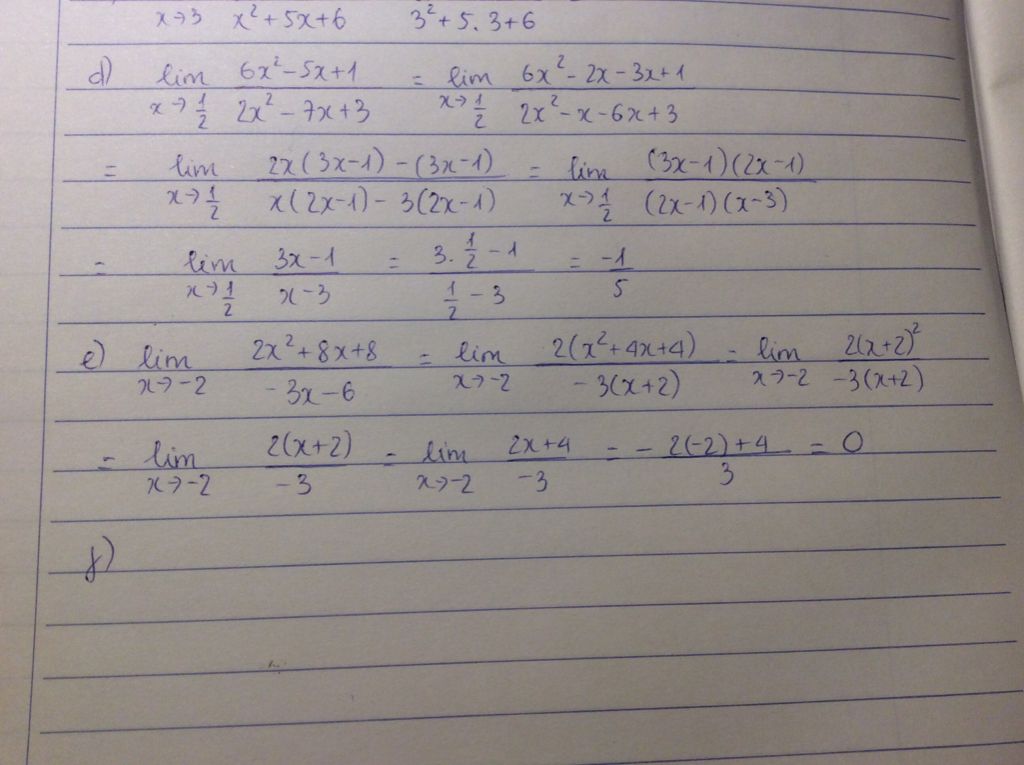 x→3 x²+5x+6 3²+5.3+6
d) lim x→1/2 (6x²-5x+1)/(2x²-7x+3) = lim x→1/2 (6x²-2x-3x+1)/(2x²-x-6x+3)
= lim x→1/2 (2x(3x-1)-(3x-1))/(x(2x-1)-3(2x-1)) = lim x→1/2 ((3x-1)(2x-1))/((2x-1)(x-3))
= lim x→1/2 (3x-1)/(x-3) = (3.1/2-1)/(1/2-3) = -1/5
e) lim x→-2 (2x²+8x+8)/(-3x-6) = lim x→-2 (2(x²+4x+4))/(-3(x+2)) = lim x→-2 (2(x+2)²)/(-3(x+2))
= lim x→-2 (2(x+2))/(-3) = lim x→-2 (2x+4)/(-3) = - (2(-2)+4)/3 = 0
f)